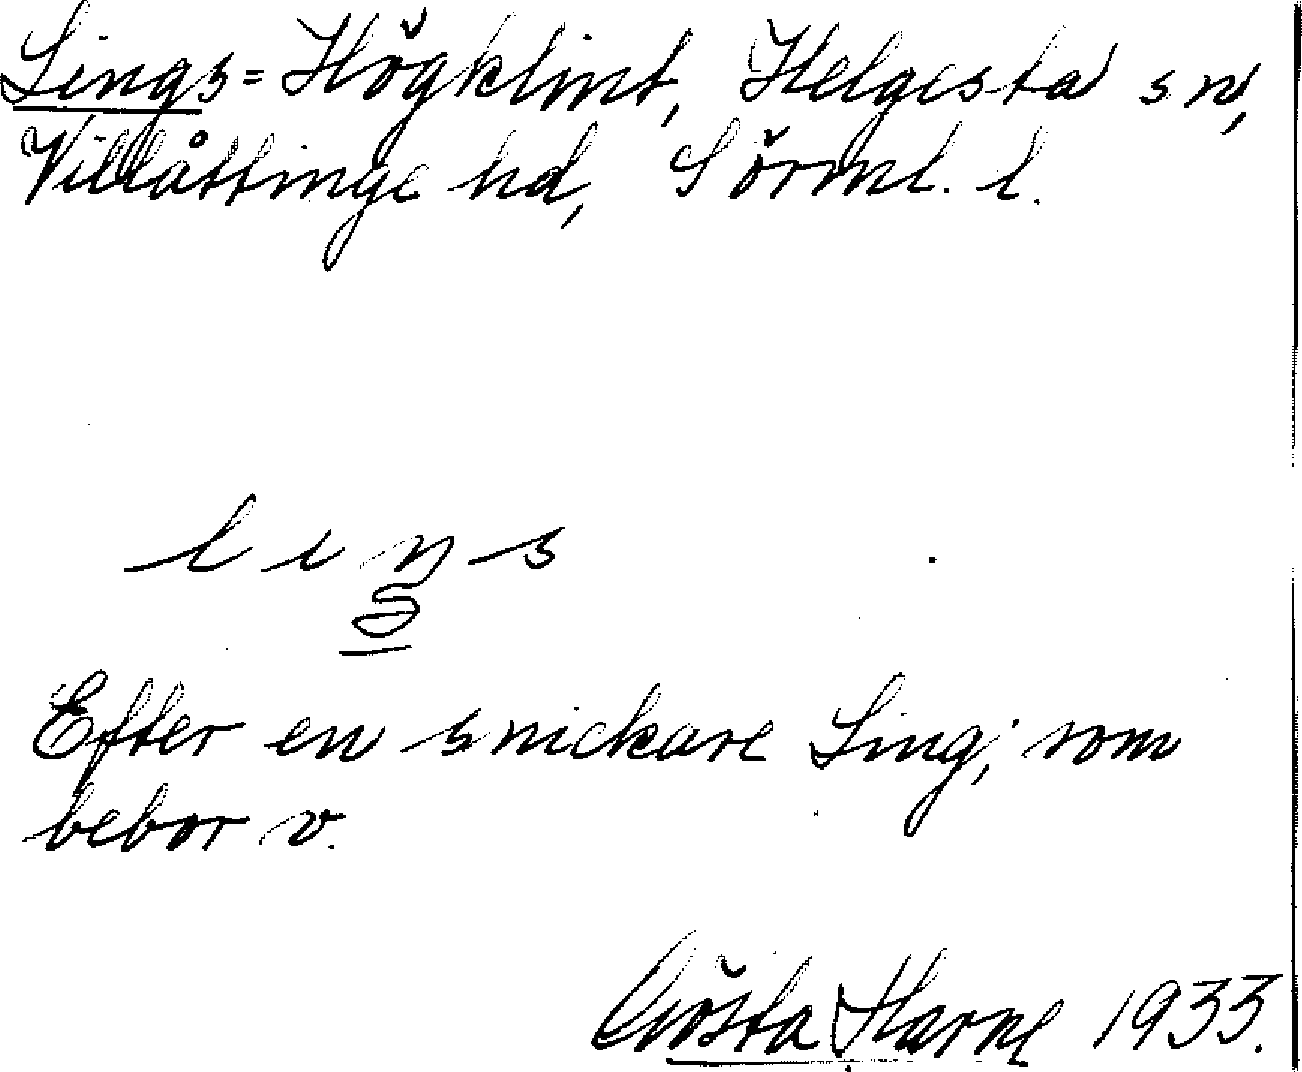 Lings = Högklint, Helgesta sn,
Villåttinge hd, Sörml. l.
lıŋs
Efter en snickare Ling, som
bebor v.
Gösta Harne 1933.